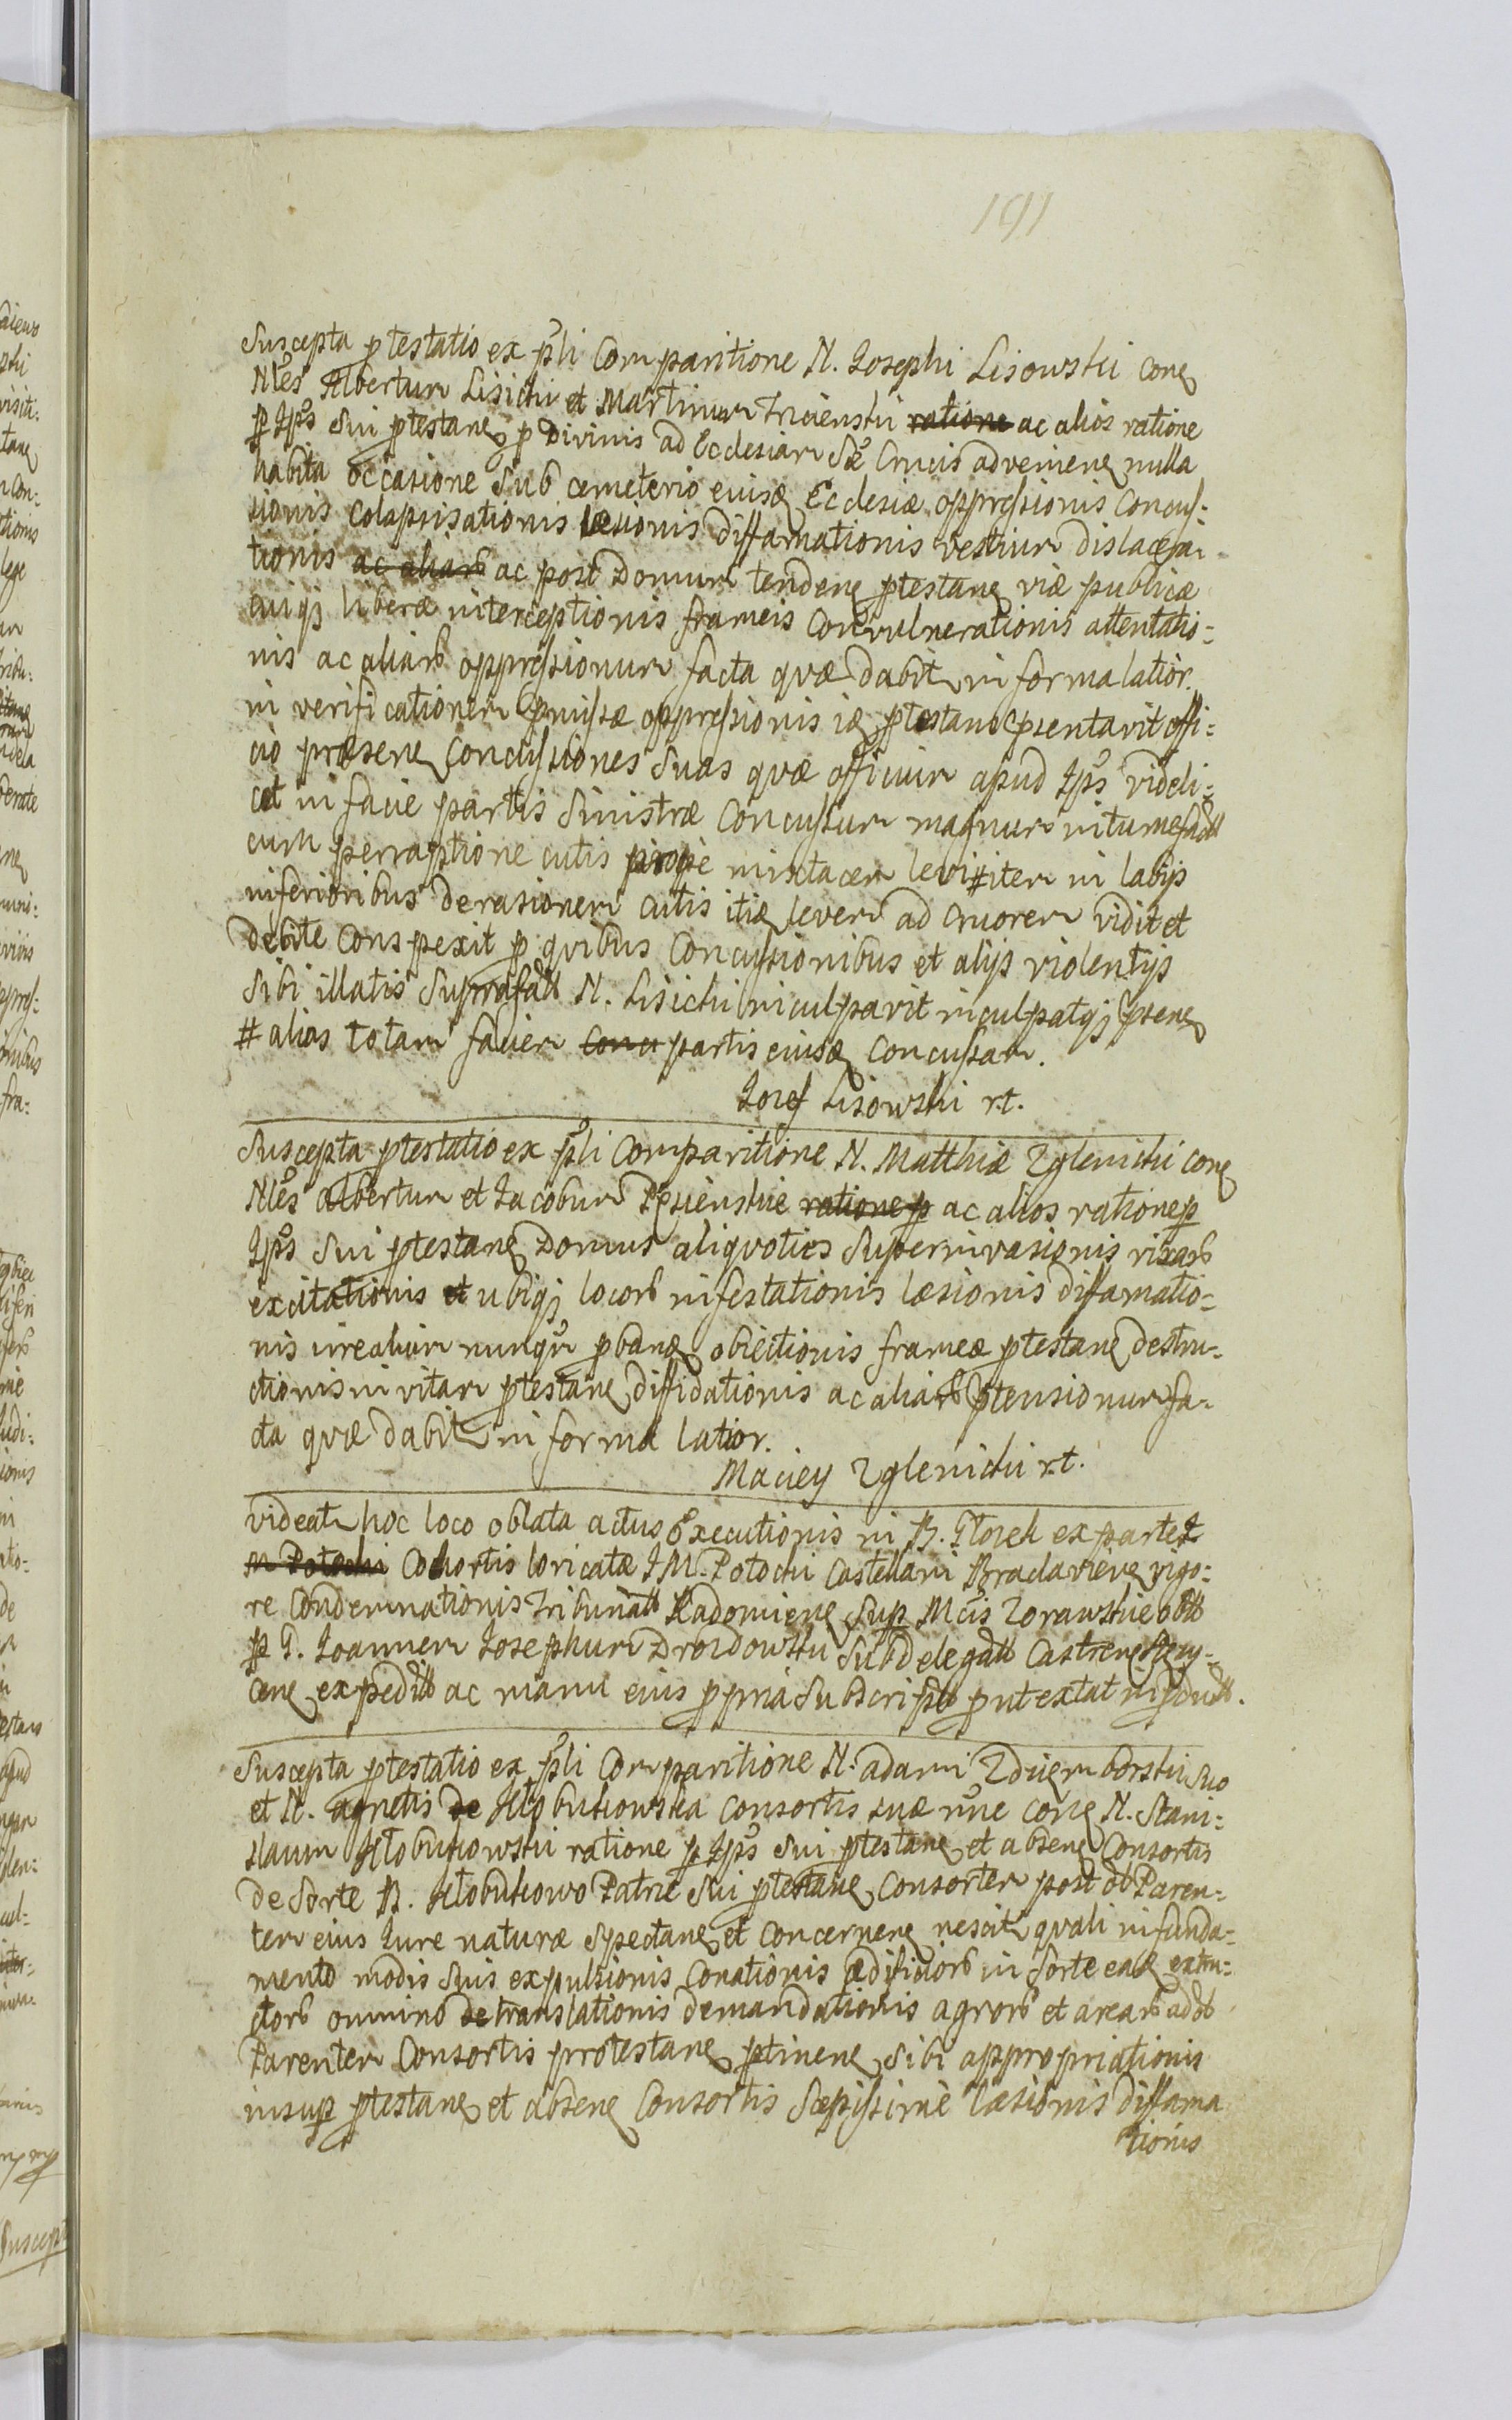 191
Suscepta ptestatio ex pñli Comparitione N. Josephi Lisowski Con̄
Nles Albertum Lisicki et Martinum Trcienski ratione ac alios ratione
p Ips̄ Sui ptestan̄ p Divinis ad Ecclesiam Sae Crucis advenien̄ nulla
habita occasione Sub cemeterio eiusd̄ Ecclesiæ oppressionis Concus-
sionis Colapsisationis læsionis diffamationis vestium dislacera-
tionis ac aliarb ac post Domum tenden̄ ptestan̄ viæ publicæ
cuiqꝫ liberæ interceptionis frameis Convulnerationis attentatio-
nis ac aliarb oppressionum facta quæ dabitr in forma latior.
in verificationem pmissæ oppressionis id̄ ptestans psentavit offi-
cio præsen̄ Concussiones Suas quæ officium apud Ips̄ videli-
cet in facie partis Sinistræ Concussum magnum intumefactt
cum perraptione cutis prope mixtacem levi#item in labijs
inferioribus derasionem cutis itid̄ levem ad cruorem vidit et
Debite Conspexit p quibus Concussionibus et alijs violentijs
Sibi illatis Suprafatt N. Lisicki inculpavit inculpatqꝫ psen̄
# alias totam faciem Conc partis eiusd̄ Concussam.
Jozef Lisowski r.t.
Suscepta ptestatio ex pñli Comparitione N. Matthiæ Zglenicki con̄
Nles Albertum et Jacobum ratione p ac alios ratione p
Ips̄ Sui ptestan̄ Domus aliquoties Superinvasionis rixarb
excitationis et ubiqꝫ locorb infestationis læsionis diffamatio-
nis in realium nunqm pband̄ obiectionis frameæ ptestan̄ destru-
ctionis in vitam ptestan̄ diffidationis ac aliarb ptensionum fa-
cta quæ dabitr in forma latior.
Maciey Zglenicki r.t.
videatr hoc loco oblata actus Executionis in B. Ptorek ex parte I
M Potocki Cohortis loricatæ I M. Potocki Castellani Braclavien̄ vigo-
re Condemnationis Tribunatt Radomien̄ Sup Mcis Zorawskie obtt
p G. Joannem Josephum Drozdowski Subdelegatt Castren̄
cen̄ expeditt ac manu eius ppria Subscriptt put extat in
Suscepta ptestatio ex pñli Comparitione N. Adami Zduemborski Suo
et N. Agnetis de Kłobukowska Consortis suæ nne con̄ N. Stani-
slaum Kłobukowski ratione p Ips̄ Sui ptestan̄ et absen̄ Consortis
de Sorte B. Kłobukowo Patrie Sui ptestan̄ Consortem post ob Paren-
tem eius Jure naturæ spectan̄ et Concernen̄ nescitr quali infunda-
mento modis Suis expulsionis Conationis ædificiorb in Sorte ead̄ extru-
ctorb omnino de translationis demandationis agrorb et arearb ad ob
Parentem Consortis protestan̄ ptinen̄ Sibi appropriationis
insup ptestan̄ et absen̄ Consortis Sæpissime læsionis diffama
tionis